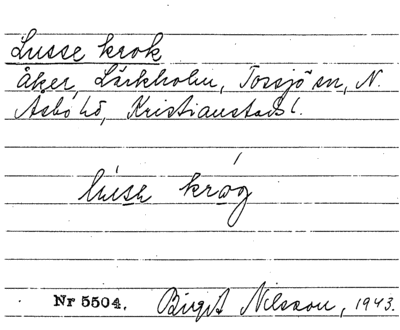 Lusse krok
åker, Lärkholm, Tossjö sn, N.
Åsbo hd, Kristianstads l.
lusse krog
Nr 5504. Birgit Nilsson, 1943.